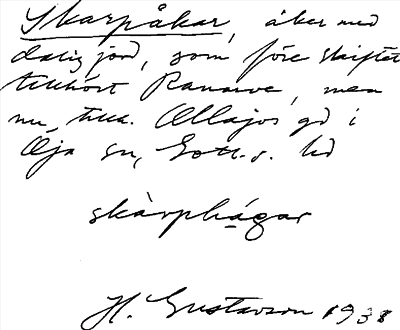 Skarpåkar, åker med
dålig jord, som före skiftet
tillhört Ranarve, men
nu till. Ollajos gd i
Öja sn, Gotl. s. hd
skàrphágar
H. Gustavson 1938